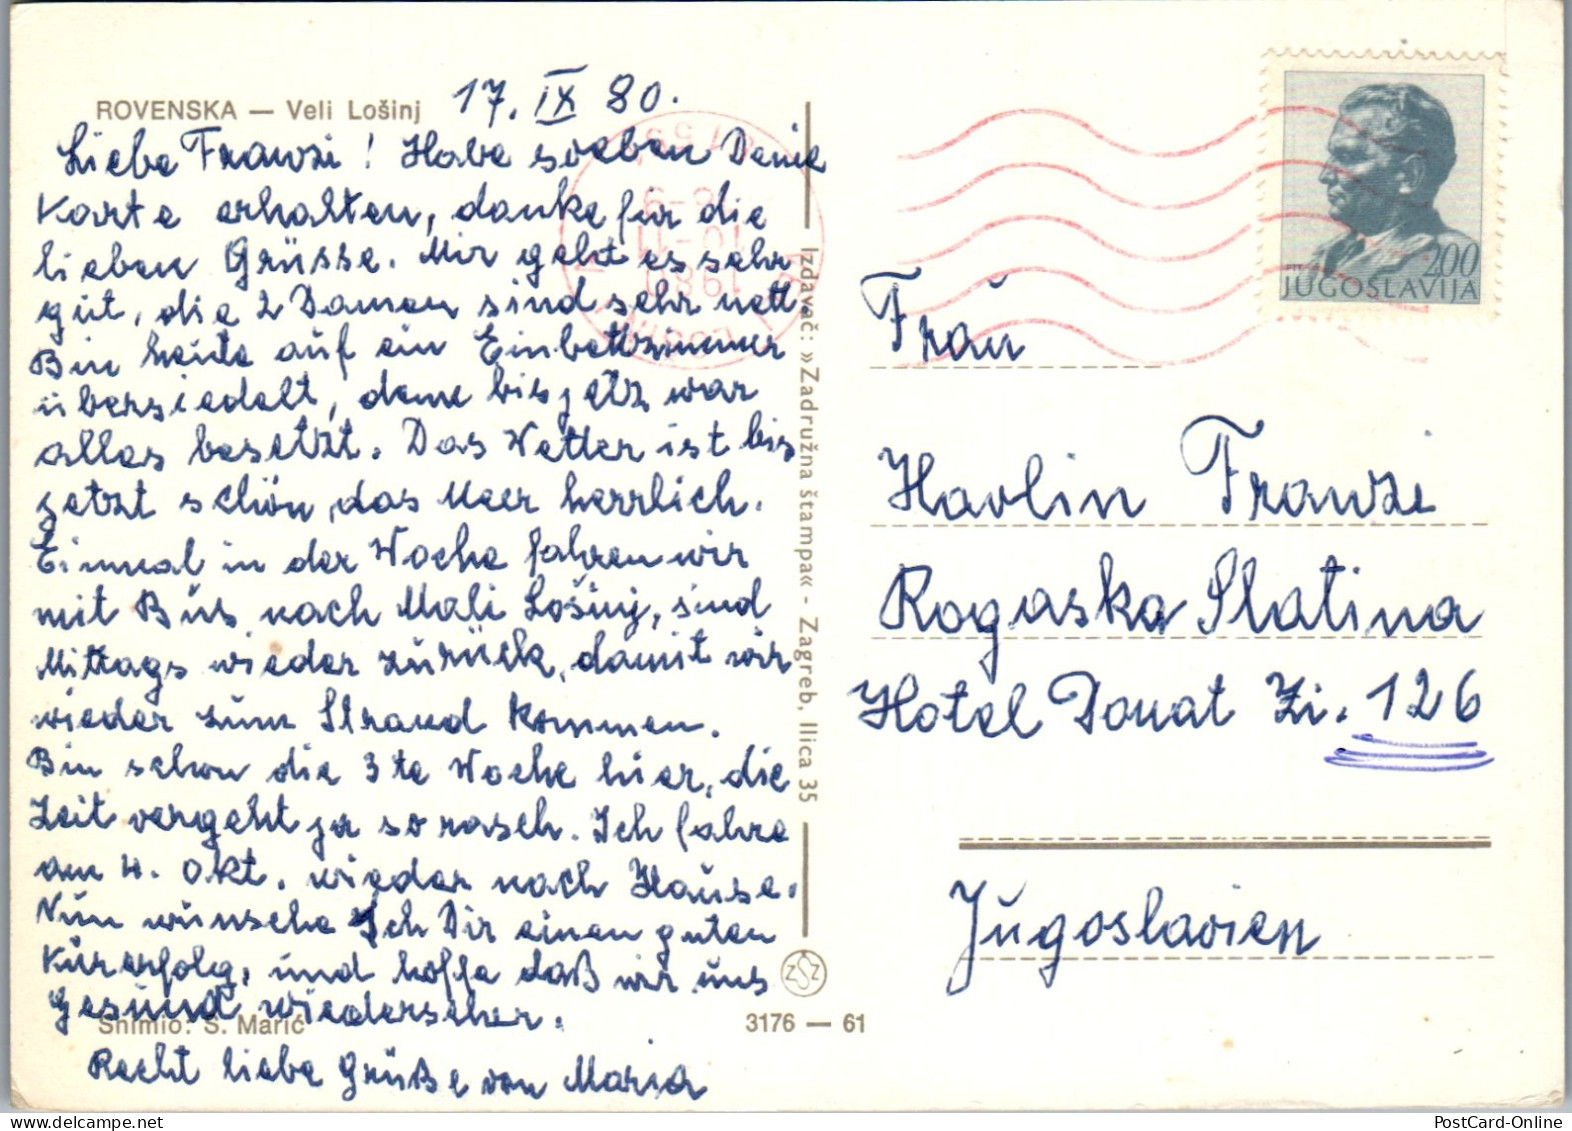 ROVENSKA — Veli Lošinj
17. IX 80.
Liebe Franzi! Habe soeben Deine
Karte erhalten, danke für die
lieben Grüsse. Mir geht es sehr
gut, die 2 Damen sind sehr nett.
Bin heute auf ein Einbettzimmer
übersiedelt, denn bis jetz war
alles besetzt. Das Wetter ist bis
jetzt schön, das Meer herrlich.
Einmal in der Woche fahren wir
mit Bus nach Mali Lošinj, sind
Mittags wieder zurück, damit wir
wieder zum Strand kommen.
Bin schon die 3te Woche hier, die
Zeit vergeht ja so rasch. Ich fahre
am 4. Okt. wieder nach Hause.
Nun wünsche Ich Dir einen guten
Kurerfolg, und hoffe daß wir uns
Gesund wiedersehen.
Snimio: S. Marić
Recht liebe Grüße von Maria
Izdavač: »Zadružna štampa« - Zagreb, Ilica 35
ZŠZ
3176 — 61
1980
2.00
JUGOSLAVIJA
Frau
Havlin Franzi
Rogaska Slatina
Hotel Donat Zi. 126
Jugoslavien
PostCard-Online